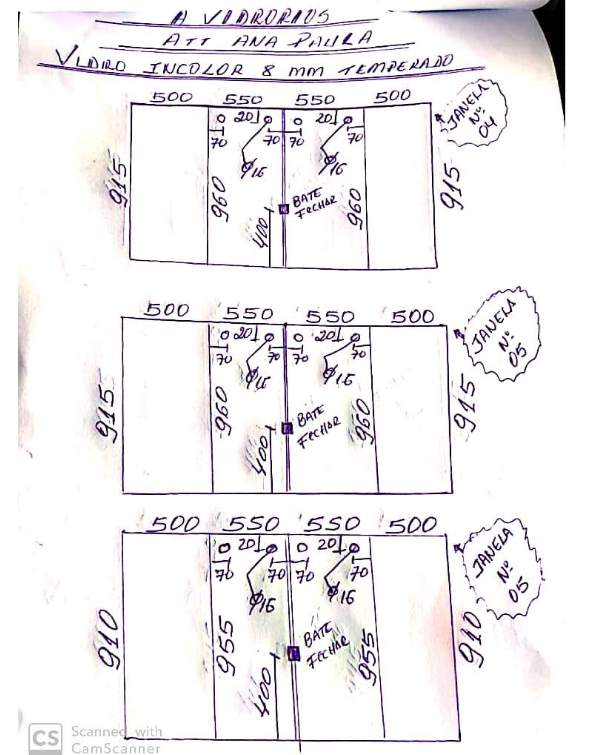 A VIDRORIOS
ATT ANA PAULA
VIDRO INCOLOR 8 MM TEMPERADO
500 550 550 500
JANELA
Nº
04
20 20
70 70 70 70
Ø16 Ø16
915 960 960 915
BATE
FECHAR
400
500 550 550 500
JANELA
Nº
05
20 20
70 70 70 70
Ø16 Ø16
915 960 960 915
BATE
FECHAR
400
500 550 550 500
JANELA
Nº
05
20 20
70 70 70 70
Ø16 Ø16
910 955 955 910
BATE
FECHAR
400
CS Scanned with
CamScanner